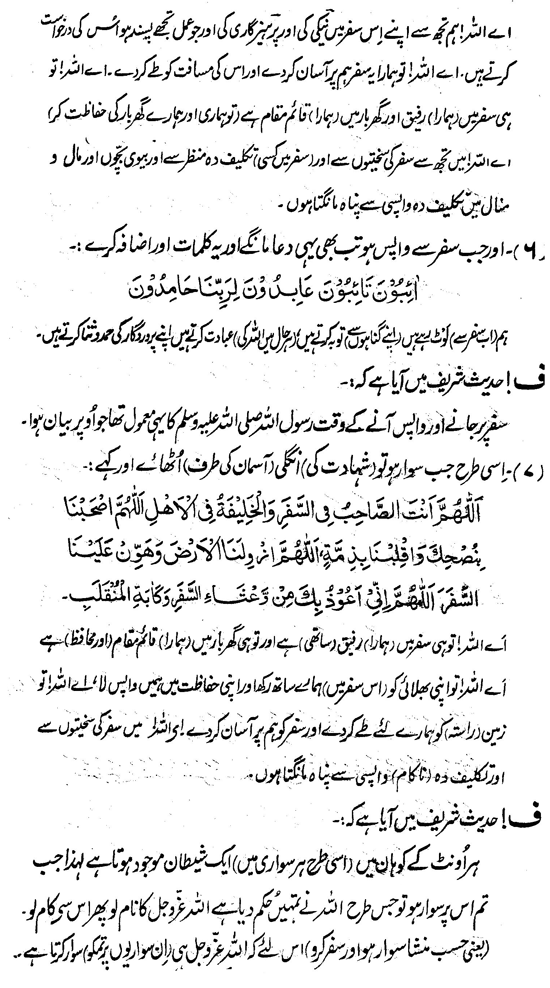 اے اللہ! ہم تجھ سے اپنے اِس سفر میں نیکی کی اور پرہیزگاری کی اور جو عمل تجھے پسند ہو اس کی درخواست
کرتے ہیں۔ اے اللہ! تو ہمارا یہ سفر ہم پر آسان کر دے اور اس کی مسافت کو طے کر دے۔ اے اللہ! تو
ہی سفر میں (ہمارا) رفیق اور گھر بار میں (ہمارا) قائم مقام ہے (تو ہماری اور ہمارے گھر بار کی حفاظت کر)
اے اللہ! میں تجھ سے سفر کی سختیوں سے اور (سفر میں کسی) تکلیف دہ منظر سے اور بیوی بچّوں اور مال و
منال میں تکلیف دہ واپسی سے پناہ مانگتا ہوں۔
(۶)۔ اور جب سفر سے واپس ہو تب بھی یہی دعا مانگے اور یہ کلمات اور اضافہ کرے :۔
اٰئِبُوْنَ تَائِبُوْنَ عَابِدُوْنَ لِرَبِّنَا حَامِدُوْنَ
ہم (اب سفر سے) لَوٹ رہے ہیں (اپنے گناہوں سے) توبہ کرتے ہیں (ہر حال میں اللہ کی) عبادت کرتے ہیں اپنے پروردگار کی حمد و ثنا کرتے ہیں۔
ف! حدیث شریف میں آیا ہے کہ :۔
سفر پر جانے اور واپس آنے کے وقت رسول اللہ صلی اللہ علیہ وسلم کا یہی معمول تھا جو اُوپر بیان ہوا۔
(۷)۔ اِسی طرح جب سوار ہو تو (شہادت کی) انگلی (آسمان کی طرف) اُٹھائے اور کہے :۔
اَللّٰهُمَّ اَنْتَ الصَّاحِبُ فِى السَّفَرِ وَالْخَلِيْفَةُ فِى الْاَهْلِ اَللّٰهُمَّ اصْحَبْنَا
بِنُصْحِكَ وَاقْلِبْنَا بِذِمَّةٍ اَللّٰهُمَّ ازْوِ لَنَا الْاَرْضَ وَهَوِّنْ عَلَيْنَا
السَّفَرَ اَللّٰهُمَّ اِنِّىْ اَعُوْذُ بِكَ مِنْ وَّعْثَاءِ السَّفَرِ وَكَابَةِ الْمُنْقَلَبِ۔
اَے اللہ! تو ہی سفر میں (ہمارا) رفیق (ساتھی) ہے اور تو ہی گھر بار میں (ہمارا) قائم مقام (اور محافظ) ہے
اَے اللہ! تو اپنی بھلائی کو (اس سفر میں) ہمارے ساتھ رکھ اور اپنی حفاظت میں ہمیں واپس لا، اے اللہ! تو
زمین (راستہ) کو ہمارے لئے طے کر دے اور سفر کو ہم پر آسان کر دے اے اللہ! میں سفر کی سختیوں سے
اور تکلیف دہ (ناکام) واپسی سے پناہ مانگتا ہوں۔
ف! حدیث شریف میں آیا ہے کہ :۔
ہر اُونٹ کے کوہان میں (اسی طرح ہر سواری میں) ایک شیطان موجود ہوتا ہے لہٰذا جب
تم اس پر سوار ہو تو جس طرح اللہ نے تمہیں حکم دیا ہے اللہ عزّوجل کا نام لو پھر اس سے کام لو۔
(یعنی حسبِ منشا سوار ہو اور سفر کرو) اس لئے کہ اللہ عزّوجل ہی (ان سواریوں پر تم کو) سوار کرتا ہے۔۔